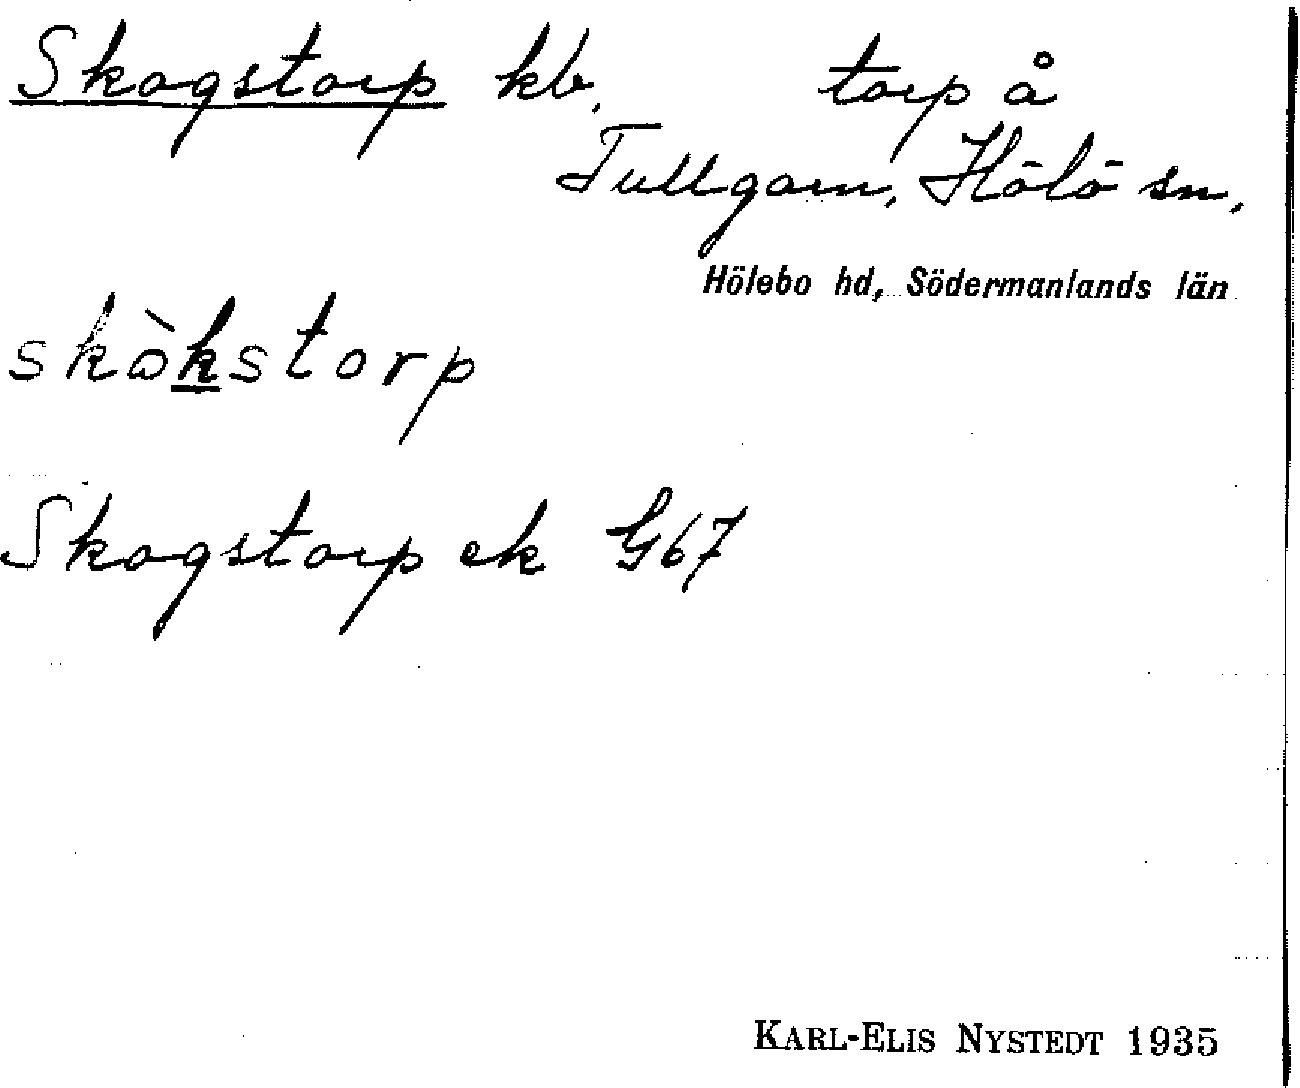 Skogstorp kb. torp å
Tullgarn, Hölö sn,
Hölebo hd, Södermanlands län
skòkstorp
Skogstorp ek G67
KARL-ELIS NYSTEDT 1935